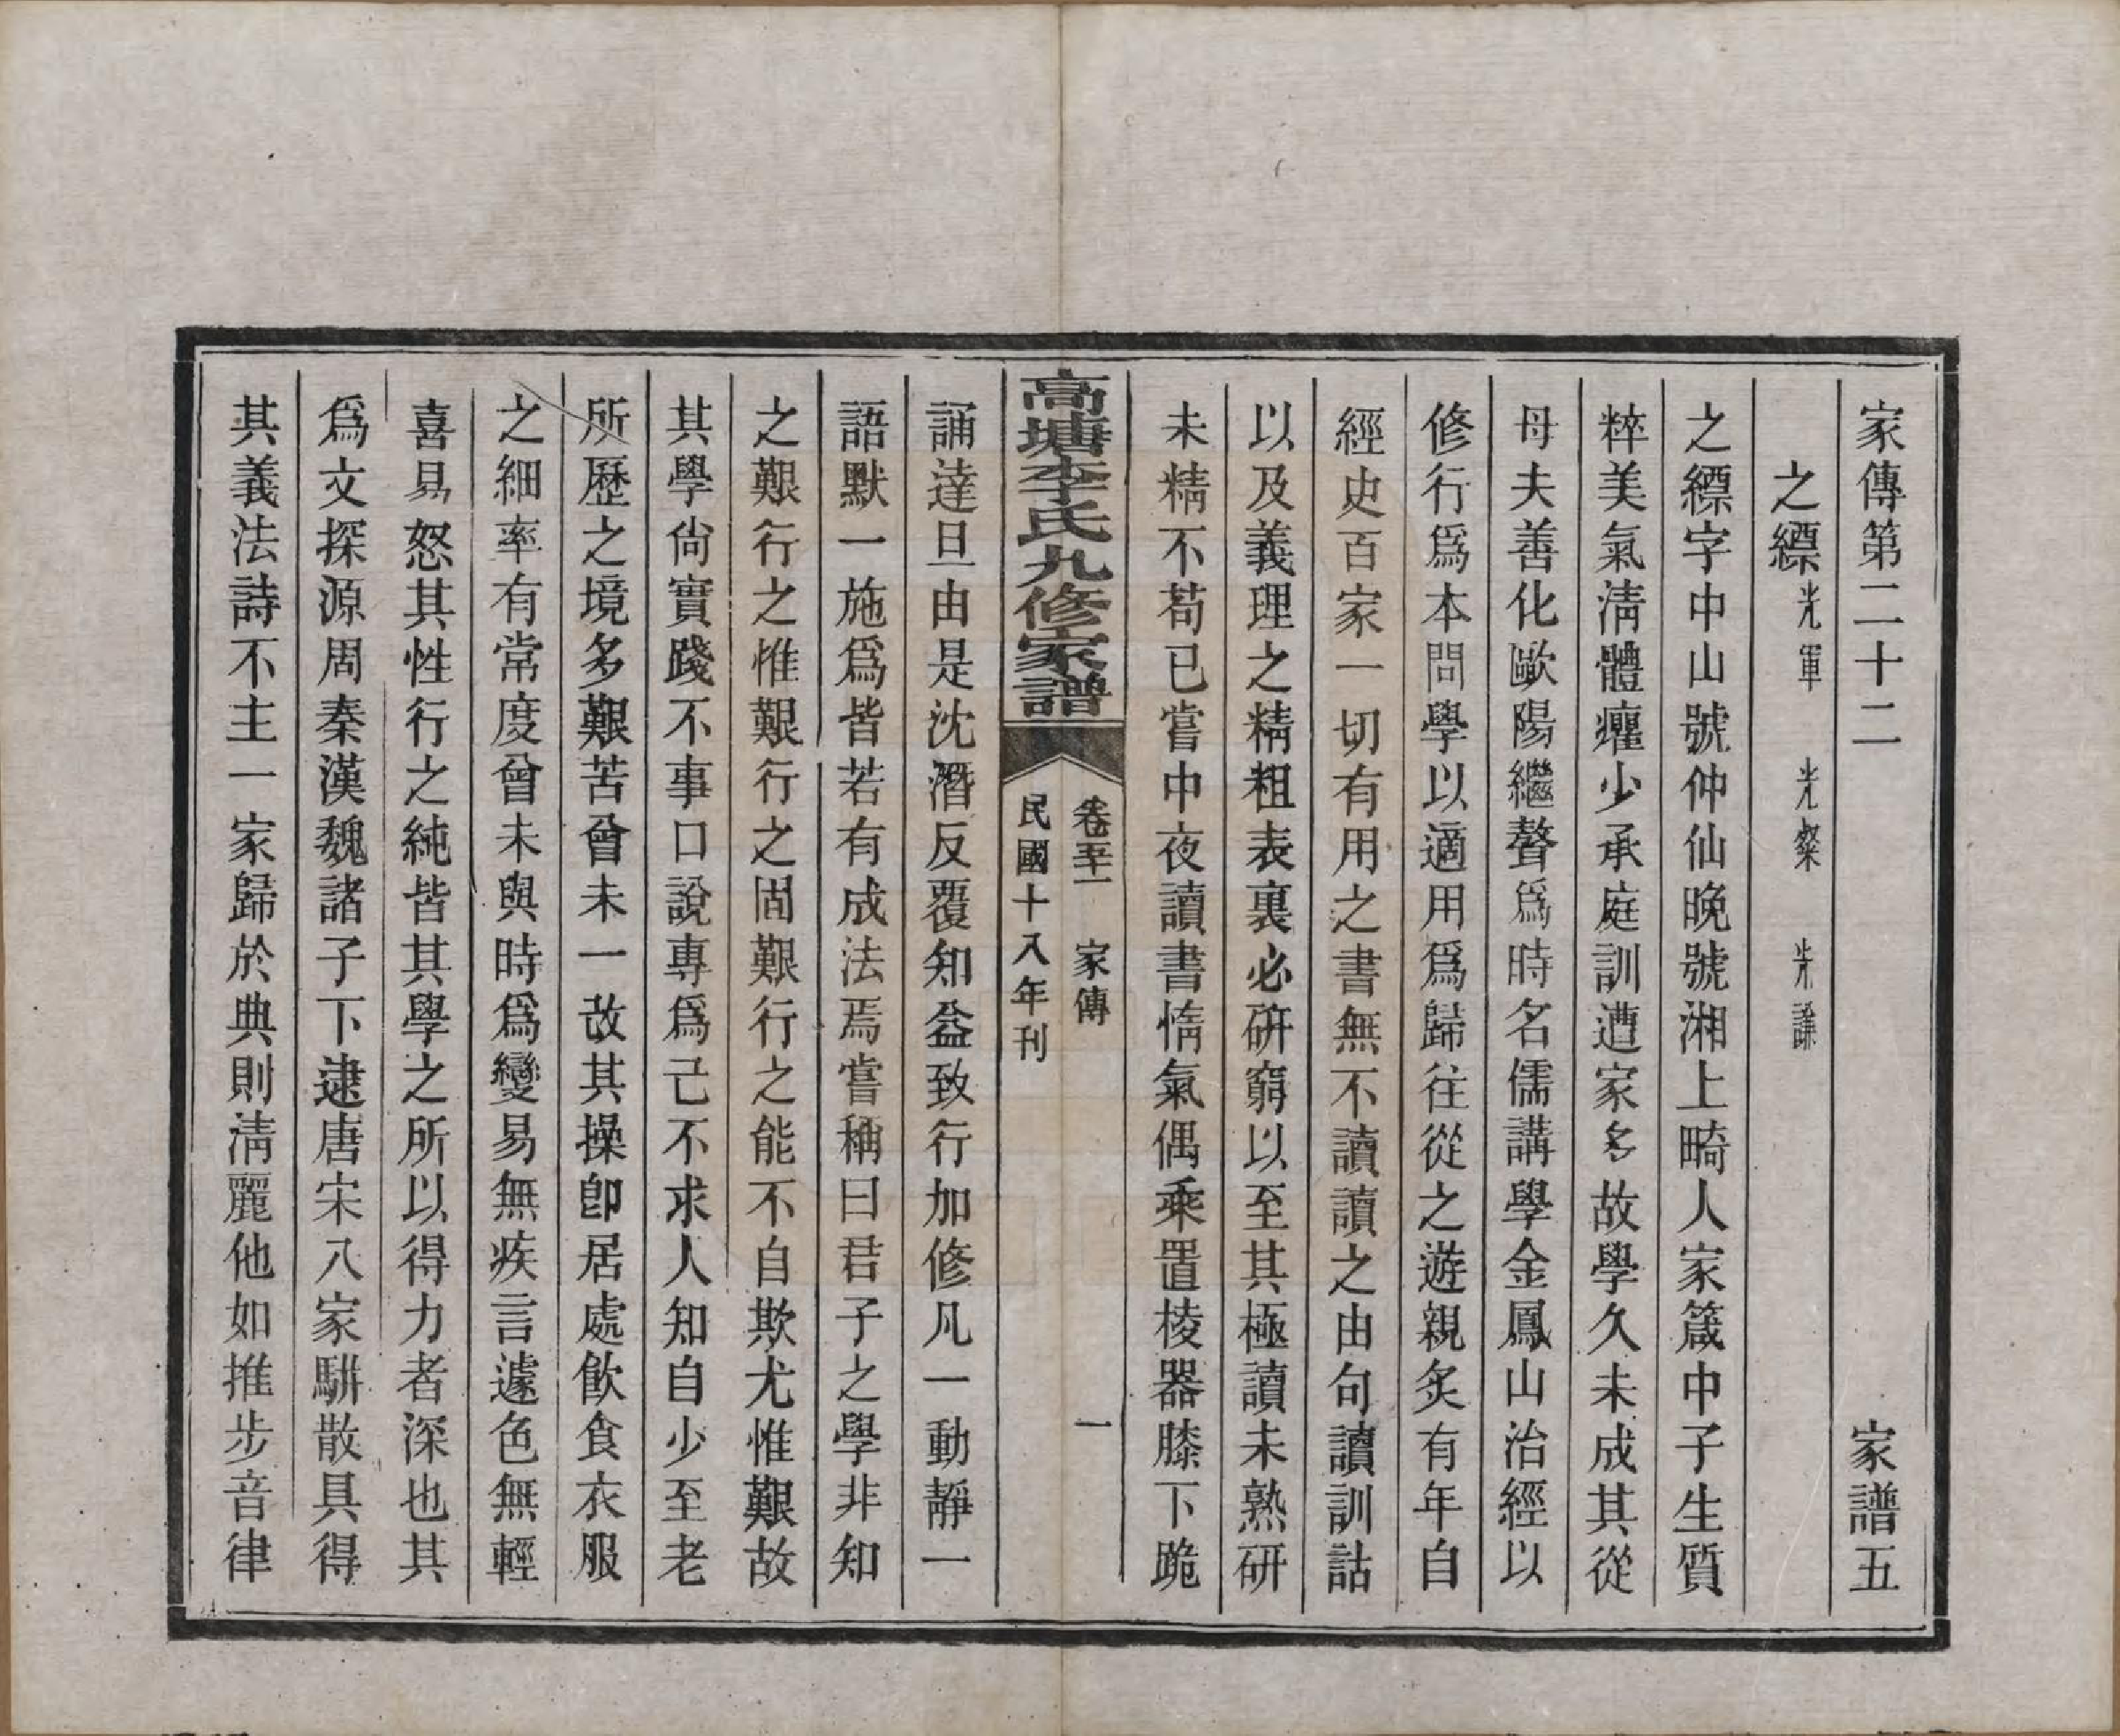 家傳第二十二 家譜五
之縹 光軍 光粲 光謙
之縹字中山號仲仙晚號湘上畸人家箴中子生質
粹美氣淸體癯少承庭訓遭家多故學久未成其從
母夫善化歐陽繼聲爲時名儒講學金鳳山治經以
修行爲本問學以適用爲歸往從之遊親炙有年自
經史百家一切有用之書無不讀讀之由句讀訓詁
以及義理之精粗表裏必硏窮以至其極讀未熟硏
未精不苟已嘗中夜讀書惰氣偶乘置棱器膝下跪
高塘李氏九修家譜 卷五十一 家傳 一
民國十八年刊
誦達旦由是沈潛反覆知益致行加修凡一動靜一
語默一施爲皆若有成法焉嘗稱曰君子之學非知
之艱行之惟艱行之固艱行之能不自欺尤惟艱故
其學尙實踐不事口說專爲己不求人知自少至老
所歷之境多艱苦曾未一改其操卽居處飮食衣服
之細率有常度曾未與時爲變易無疾言遽色無輕
喜易怒其性行之純皆其學之所以得力者深也其
爲文探源周秦漢魏諸子下逮唐宋八家駢散具得
其義法詩不主一家歸於典則淸麗他如推步音律